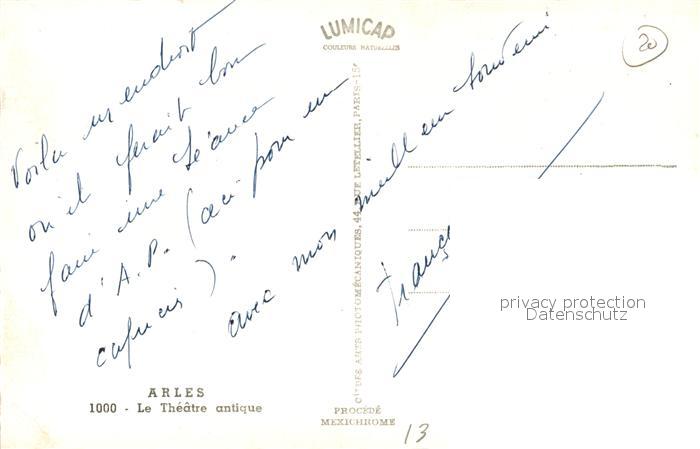 LUMICAP
COULEURS NATURELLES
20
Voilà un endroit
où il ferait bon
faire une séance
d'A.P. (ceci pour un
capucin)".
avec mon meilleur souvenir
Cie DES ARTS PHOTOMÉCANIQUES, 44, RUE LETELLIER, PARIS-15e
privacy protection
Datenschutz
ARLES
1000 - Le Théâtre antique
PROCÉDÉ
MEXICHROME
13